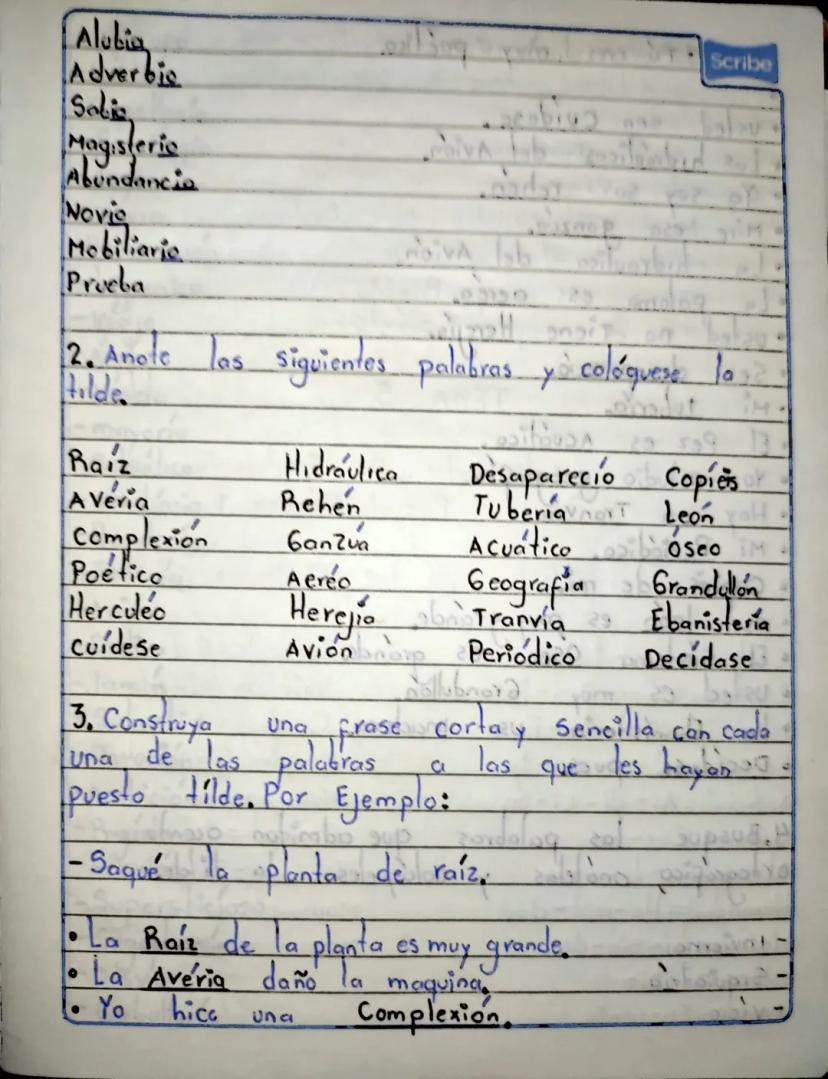 Alubia
Scribe
Adverbio
Sabio
Magisterio
Abundancia
Novio
Mobiliario
Prueba
2. Anote las siguientes palabras y colóquese la
tilde.
Raíz Hidráulica Desaparecío Copíes
Avéria Rehén Tubería León
Complexión Ganzúa Acuático óseo
Poético Aeréo Geografía Grandullón
Herculéo Herejía Tranvía Ebanistería
cuídese Avión Periódico Decídase
3. Construya una frase corta y sencilla con cada
una de las palabras a las que les hayan
puesto tílde. Por Ejemplo:
- Saqué la planta de raíz.
• La Raíz de la planta es muy grande.
• La Avéria daño la maquina.
• Yo hice una Complexión.